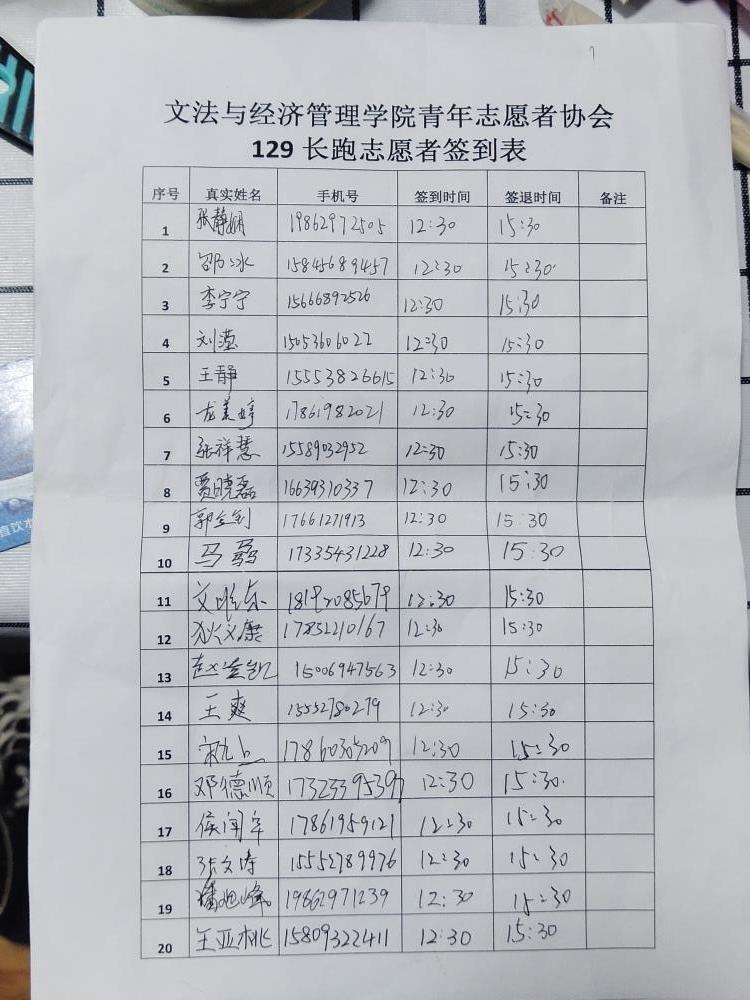 文法与经济管理学院青年志愿者协会
129 长跑志愿者签到表
序号 真实姓名 手机号 签到时间 签退时间 备注
1 张静娴 19862972505 12:30 15:30
2 邵冰 15845689457 12:30 15:30
3 李宁宁 15666892526 12:30 15:30
4 刘滢 15053606022 12:30 15:30
5 王静 15553826615 12:30 15:30
6 龙美婷 17861982021 12:30 15:30
7 张祥慧 15589032952 12:30 15:30
8 贾晓磊 16639310337 12:30 15:30
9 郭金钊 17661271913 12:30 15:30
10 马骉 17335431228 12:30 15:30
11 12:30 15:30
12 狄文康 17852210167 12:30 15:30
13 15006947563 12:30 15:30
14 王爽 15552780279 12:30 15:30
15 17860305209 12:30 15:30
16 邓德顺 17323395397 12:30 15:30
17 侯闻军 17861959121 12:30 15:30
18 张文涛 15552789976 12:30 15:30
19 潘旭峰 19862971239 12:30 15:30
20 王亚桃 15809322411 12:30 15:30
直饮水